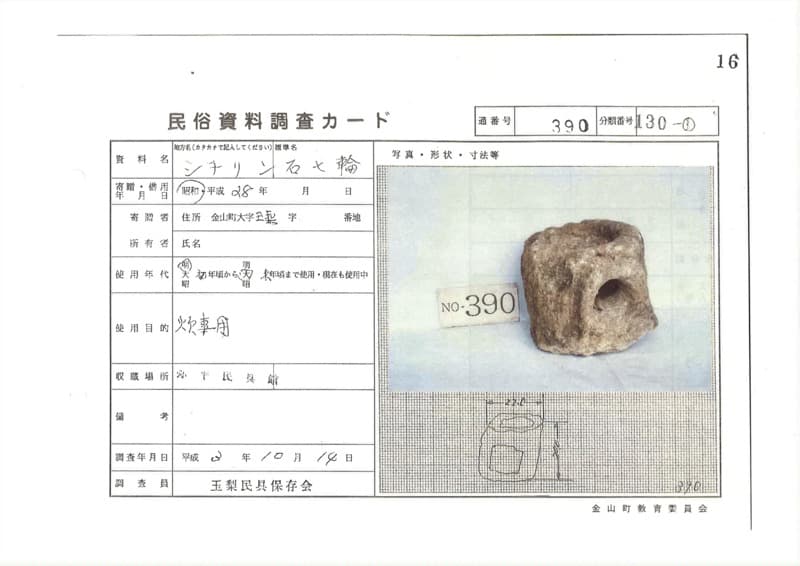 16
民俗資料調査カード
通番号 390 分類番号 130-①
資料名 地方名(カタカナで記入してください) 標準名
シチリン 石七輪
写真・形状・寸法等
寄贈・借用年月日 昭和・平成 28年 月 日
寄贈者 住所 金山町大字玉梨 字 番地
所有者 氏名
使用年代 明大昭 初年頃から 明大昭 末年頃まで使用・現在も使用中
NO-390
使用目的 炊事用
収蔵場所 民具館
備考
22.0
調査年月日 平成 2年 10月 14日
調査員 玉梨民具保存会
390
金山町教育委員会